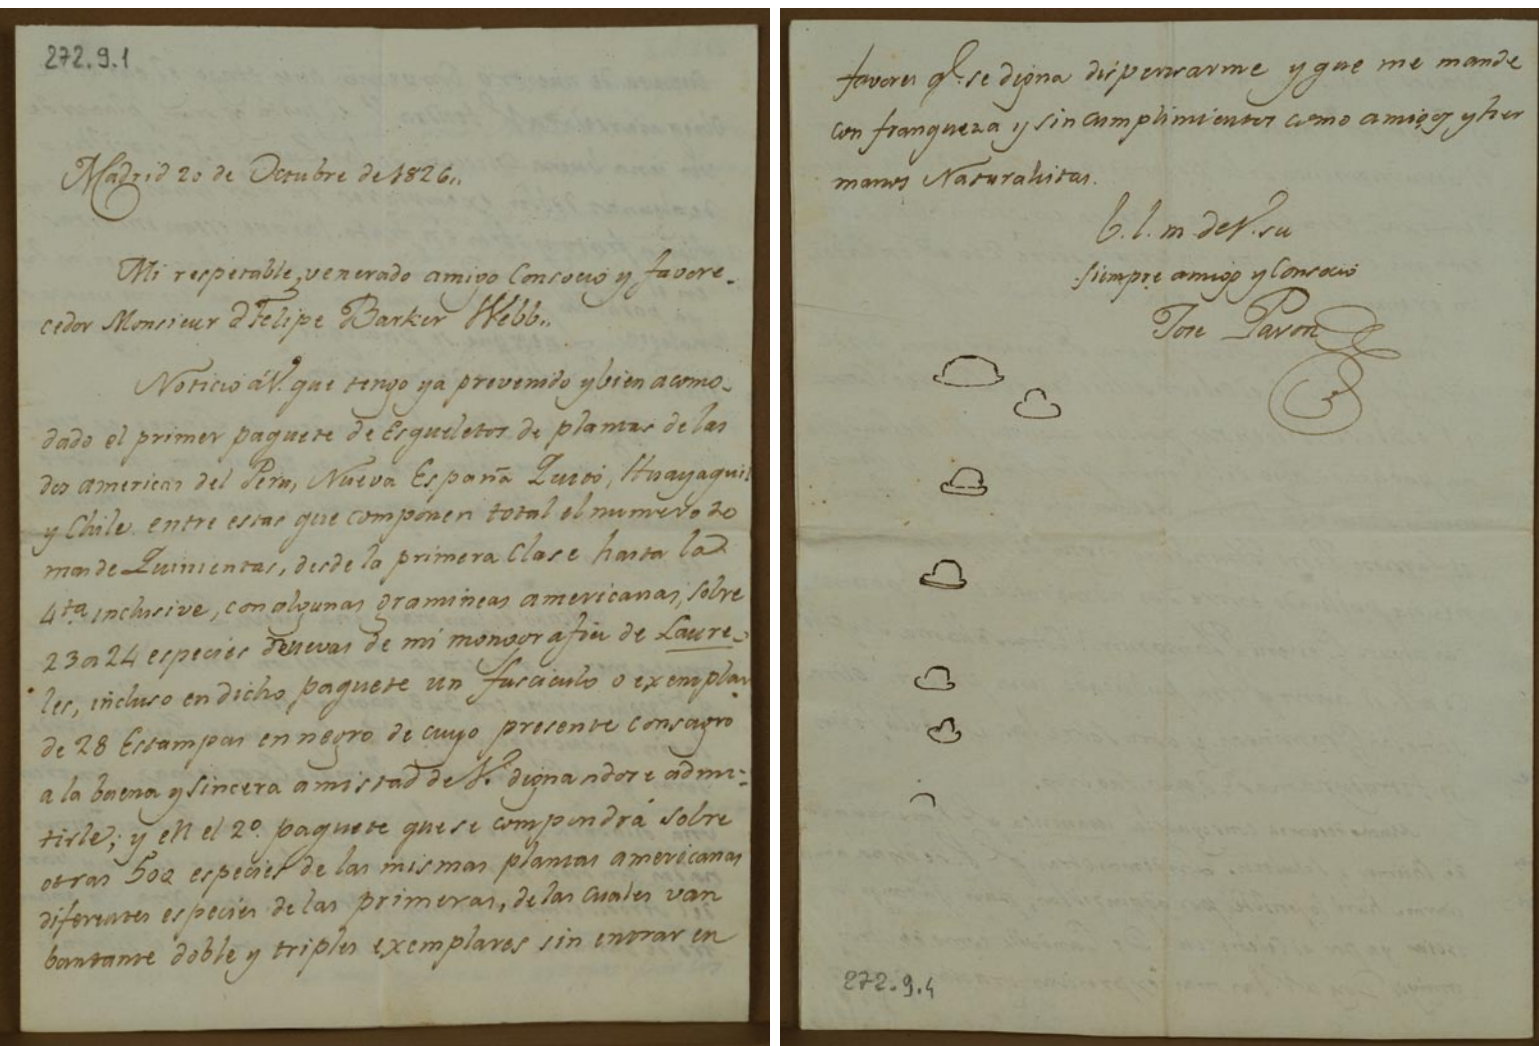 272.9.1
Madrid 20 de Octubre de 1826,,
Mi respetable, venerado amigo Consocio y favore-
cedor Monsieur dn Felipe Barker Webb,,
Noticio á V. que tengo ya prevenido y bien acomo-
dado el primer paquete de Esqueletos de plantas de las
dos americas del Peru, Nueva España Quito, Huayaquil
y Chile entre estas que componen total el numero de
mas de Quinientas, desde la primera Clase hasta la
4ta inclusive, con algunas gramineas americanas, sobre
23 a 24 especies nuevas de mi monografia de Laure-
les, incluso en dicho paquete un fasciculo o exemplar
de 28 Estampas en negro de cuyo presente consagro
a la buena y sincera amistad de V. dignandose admi-
tirle; y en el 2o. paquete que se compondrá sobre
otras 500 especies de las mismas plantas americanas
diferentes especies de las primeras, de las cuales van
bastante doble y triples exemplares sin entrar en
favores q.e se digna dispensarme y que me mande
con franqueza y sin cumplimientos como amigos y her
manos Naturalistas.
b. l. m de V. su
siempre amigo y Consocio
Jose Pavon
272.9.4